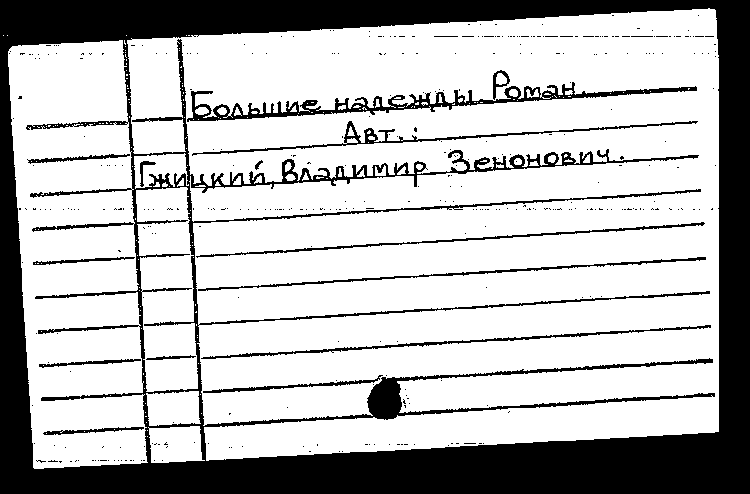 Большие надежды Роман.
Авт.:
Гжицкий, Владимир Зенонович.